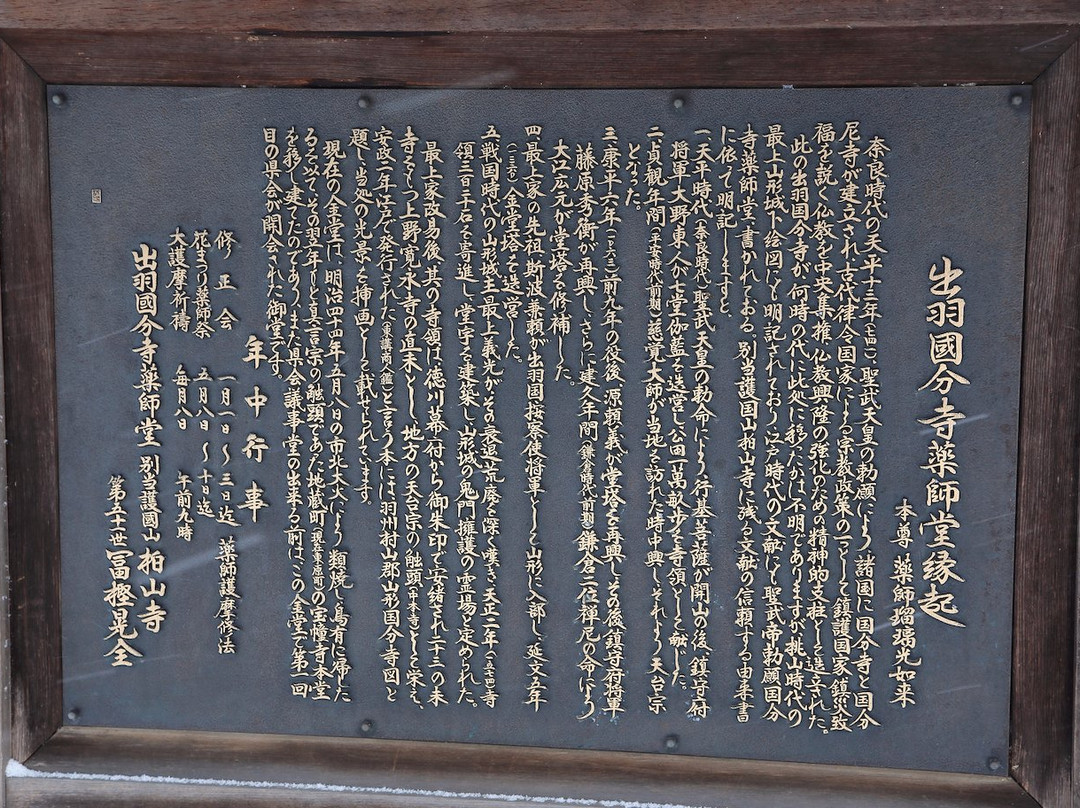 出羽國分寺薬師堂縁起
本尊 薬師瑠璃光如来
奈良時代の天平十三年(七四一)、聖武天皇の勅願により、諸国に国分寺と国分
尼寺が建立され、古代律令国家による宗教政策の一として鎮護国家、鎮災致
福を説く仏教を中央集権、仏教興隆の強化のための精神的支柱として造立された。
此の出羽国分寺が何時の代に此処に移ったかは不明でありますが、桃山時代の
最上山形城下絵図にも明記されており、江戸時代の文献にも聖武帝勅願国分
寺薬師堂と書かれておる、別当護国山柏山寺に残る文献の信頼する由来書
に依って明記しますと、
一、天平時代(奈良時代)聖武天皇の勅命により、行基菩薩が開山の後、鎮守府
将軍大野東人が七堂伽藍を造営し、公田一萬畝歩を寺領として献した。
二、貞観年間(平安時代前期)慈覚大師が当地を訪れた時中興し、それより天台宗
となった。
三、康平六年(一〇六三)前九年の役後、源頼義が堂塔を再興し、その後鎮守府将軍
藤原秀衡が再興し、さらに建久年間(鎌倉時代前期)鎌倉二位禅尼の命により
大江広元が堂塔を修補した。
四、最上家の先祖、斯波兼頼が出羽国按察使将軍として山形に入部し、延文五年
(一三六〇)金堂塔を造営した。
五、戦国時代の山形城主最上義光がその衰退荒廃を深く嘆き、天正二年(一五七四)寺
領三百二千石を寄進し、堂宇を建築し、山形城の鬼門擁護の霊場と定められた。
最上家改易後、其の寺領は徳川幕府から御朱印で安緒され、二十三の末
寺をもつ上野寛永寺の直末とし、地方の天台宗の触頭(中本寺)として栄え、
安政二年江戸で発行された(東講商人鑑)と言う本には、羽州村山郡山形国分寺図と
題し、当処の光景を挿画として載せられています。
現在の金堂は、明治四十四年五月八日の市北大火により、類焼し烏有に帰した
るを以て、その翌年もと真言宗の触頭であった地蔵町(現在季原前)の宝幢寺本堂
を移し建てたのであり、また県会議事堂の出来る前はこの金堂で第一回
目の県会が開会された御堂です。
年中行事
修正会 一月一日〜三日迄 薬師護摩修法
花まつり薬師祭 五月八日〜十日迄
大護摩祈祷 毎月八日 午前九時
出羽國分寺薬師堂 別当護國山 柏山寺
第五十一世 冨樫晃全